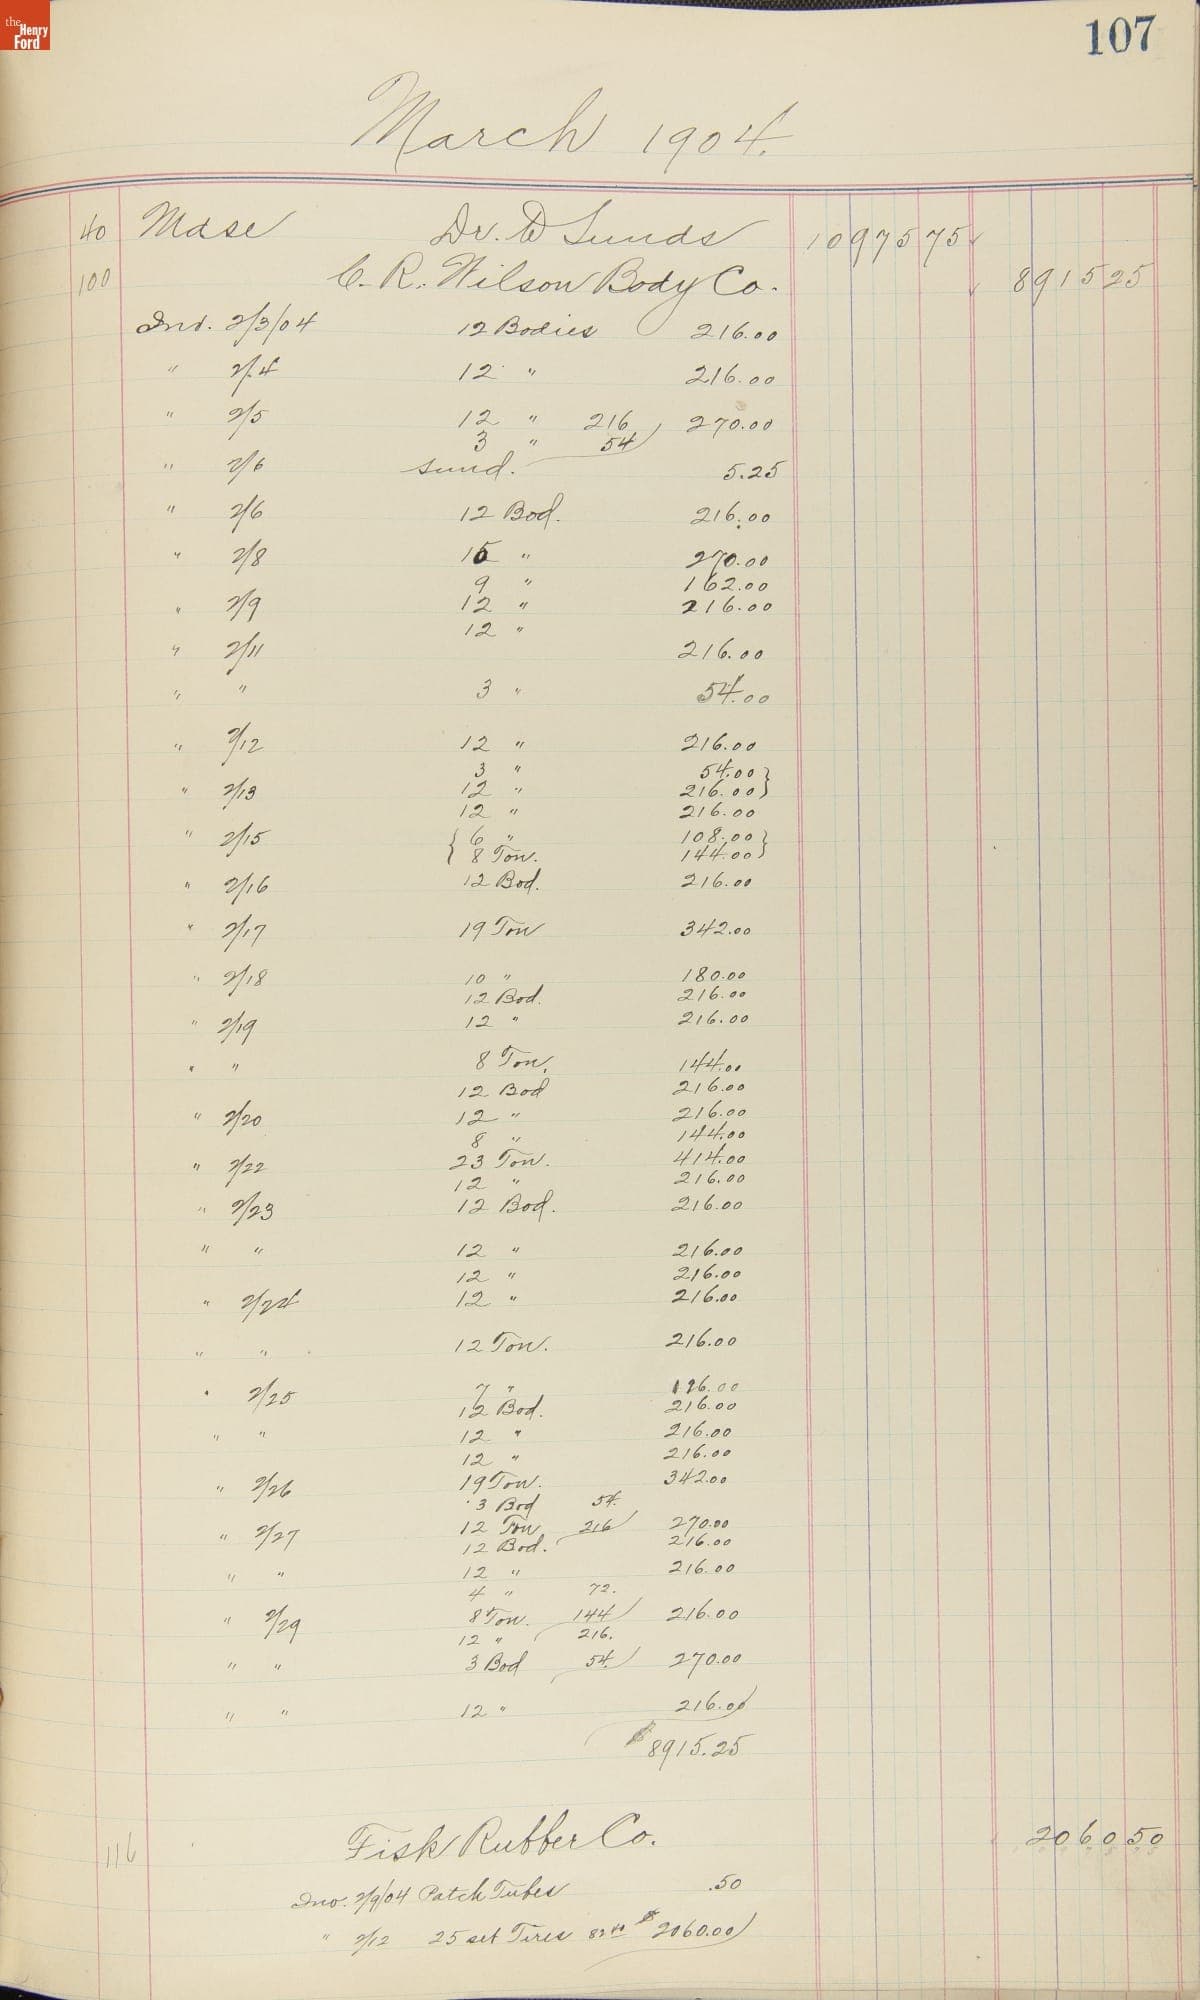 the
Henry
Ford
107
March 1904.
40 Mdse Dr. To Sunds 10975 75
100 C. R. Wilson Body Co. 8915 25
Inv. 2/3/04 12 Bodies 216.00
" 2/4 12 " 216.00
" 2/5 12 " 216 270.00
3 " 54
" 2/6 sund. 5.25
" 2/6 12 Bod. 216.00
" 2/8 15 " 270.00
9 " 162.00
" 2/9 12 " 216.00
12 "
" 2/11 216.00
" " 3 " 54.00
" 2/12 12 " 216.00
3 " 54.00
" 2/13 12 " 216.00
12 " 216.00
" 2/15 6 " 108.00
8 Ton. 144.00
" 2/16 12 Bod. 216.00
" 2/17 19 Ton 342.00
" 2/18 10 " 180.00
12 Bod. 216.00
" 2/19 12 " 216.00
" " 8 Ton. 144.00
12 Bod 216.00
" 2/20 12 " 216.00
8 " 144.00
" 2/22 23 Ton. 414.00
12 " 216.00
" 2/23 12 Bod. 216.00
" " 12 " 216.00
12 " 216.00
" 2/24 12 " 216.00
" " 12 Ton. 216.00
" 2/25 7 " 126.00
12 Bod. 216.00
" " 12 " 216.00
12 " 216.00
" 2/26 19 Ton. 342.00
3 Bod 54.
" 2/27 12 Ton 216 270.00
12 Bod. 216.00
" " 12 " 216.00
4 " 72.
" 2/29 8 Ton. 144 216.00
12 " 216.
" " 3 Bod 54. 270.00
" " 12 " 216.00
$8915.25
116 Fisk Rubber Co. 2060 50
Inv. 2/9/04 Patch Tubes .50
" 2/12 25 set Tires 82 40 $2060.00